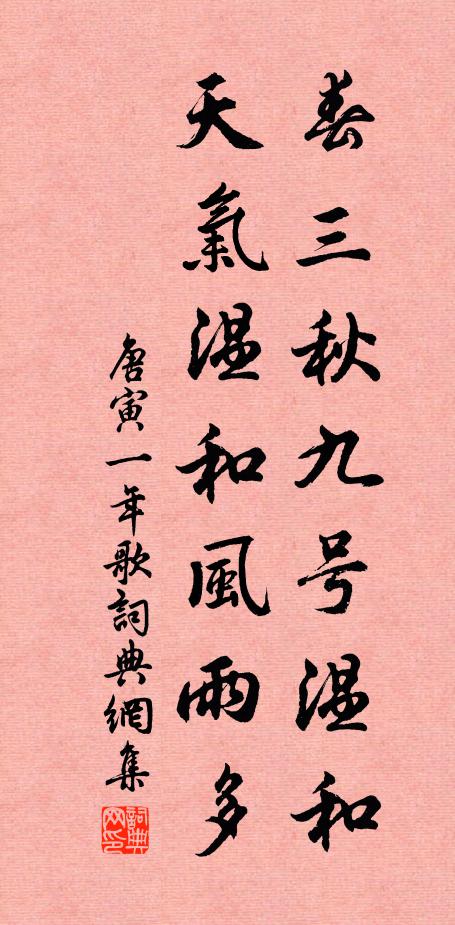 春三秋九号温和
天氣温和風雨多
唐寅一年歌詞典網集
詞典網印